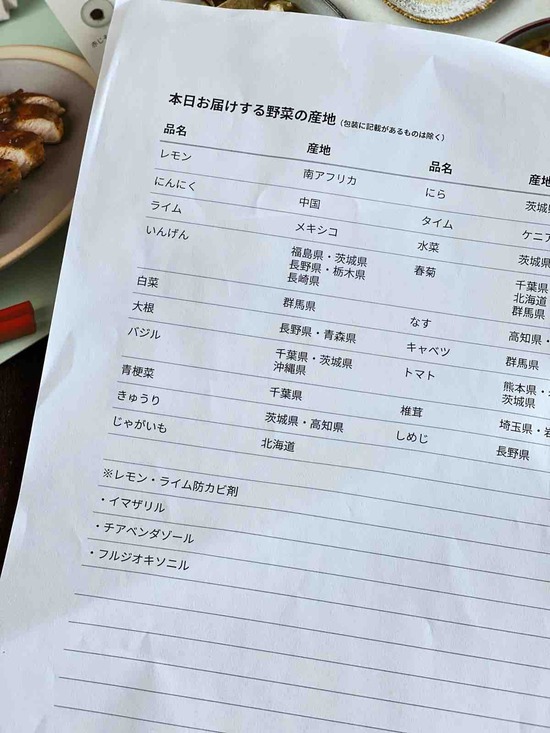 本日お届けする野菜の産地 (包装に記載があるものは除く)
品名 産地 品名
レモン 南アフリカ にら 茨城
にんにく 中国 タイム ケニア
ライム メキシコ 水菜 茨城
いんげん 福島県・茨城県 春菊 千葉県
長野県・栃木県 北海道
長崎県 群馬県
白菜 群馬県 なす 高知県・
大根 長野県・青森県 キャベツ 群馬県
バジル 千葉県・茨城県 トマト 熊本県・
沖縄県 茨城県
青梗菜 千葉県 椎茸 埼玉県・
きゅうり 茨城県・高知県 しめじ 長野県
じゃがいも 北海道
※レモン・ライム防カビ剤
・イマザリル
・チアベンダゾール
・フルジオキソニル